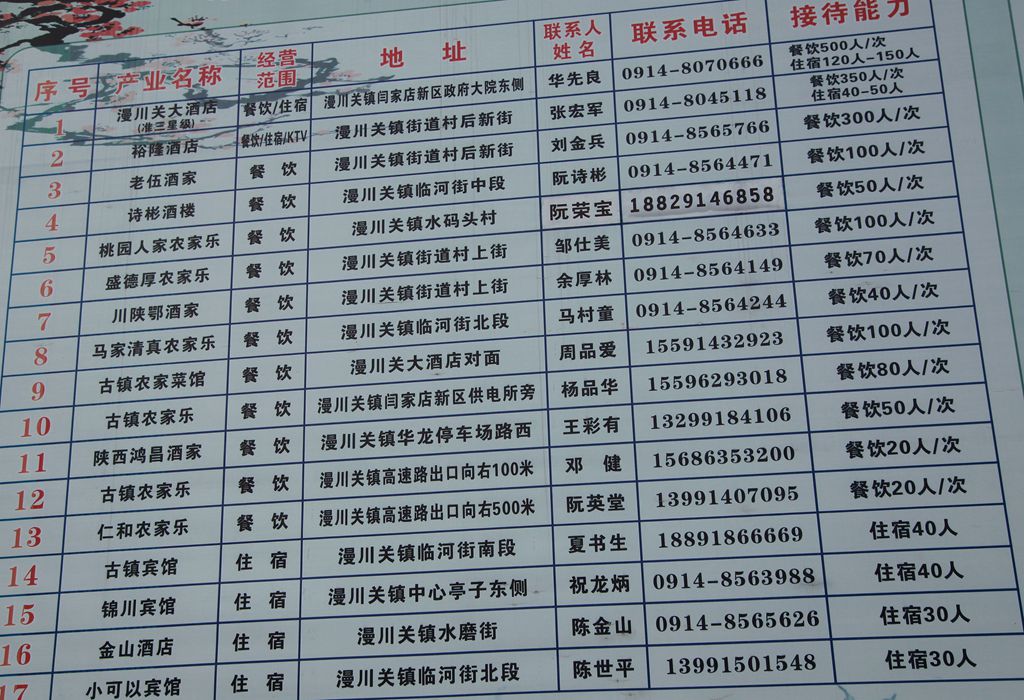 序号 产业名称 经营范围 地址 联系人姓名 联系电话 接待能力
1 漫川关大酒店(准三星级) 餐饮/住宿 漫川关镇闫家店新区政府大院东侧 华先良 0914-8070666 餐饮500人/次 住宿120人-150人
2 裕隆酒店 餐饮/住宿/KTV 漫川关镇街道村后新街 张宏军 0914-8045118 餐饮350人/次 住宿40-50人
3 老伍酒家 餐饮 漫川关镇街道村后新街 刘金兵 0914-8565766 餐饮300人/次
4 诗彬酒楼 餐饮 漫川关镇临河街中段 阮诗彬 0914-8564471 餐饮100人/次
5 桃园人家农家乐 餐饮 漫川关镇水码头村 阮荣宝 18829146858 餐饮50人/次
6 盛德厚农家乐 餐饮 漫川关镇街道村上街 邹仕美 0914-8564633 餐饮100人/次
7 川陕鄂酒家 餐饮 漫川关镇街道村上街 余厚林 0914-8564149 餐饮70人/次
8 马家清真农家乐 餐饮 漫川关镇临河街北段 马村童 0914-8564244 餐饮40人/次
9 古镇农家菜馆 餐饮 漫川关大酒店对面 周品爱 15591432923 餐饮100人/次
10 古镇农家乐 餐饮 漫川关镇闫家店新区供电所旁 杨品华 15596293018 餐饮80人/次
11 陕西鸿昌酒家 餐饮 漫川关镇华龙停车场路西 王彩有 13299184106 餐饮50人/次
12 古镇农家乐 餐饮 漫川关镇高速路出口向右100米 邓健 15686353200 餐饮20人/次
13 仁和农家乐 餐饮 漫川关镇高速路出口向右500米 阮英堂 13991407095 餐饮20人/次
14 古镇宾馆 住宿 漫川关镇临河街南段 夏书生 18891866669 住宿40人
15 锦川宾馆 住宿 漫川关镇中心亭子东侧 祝龙炳 0914-8563988 住宿40人
16 金山酒店 住宿 漫川关镇水磨街 陈金山 0914-8565626 住宿30人
17 小可以宾馆 住宿 漫川关镇临河街北段 陈世平 13991501548 住宿30人